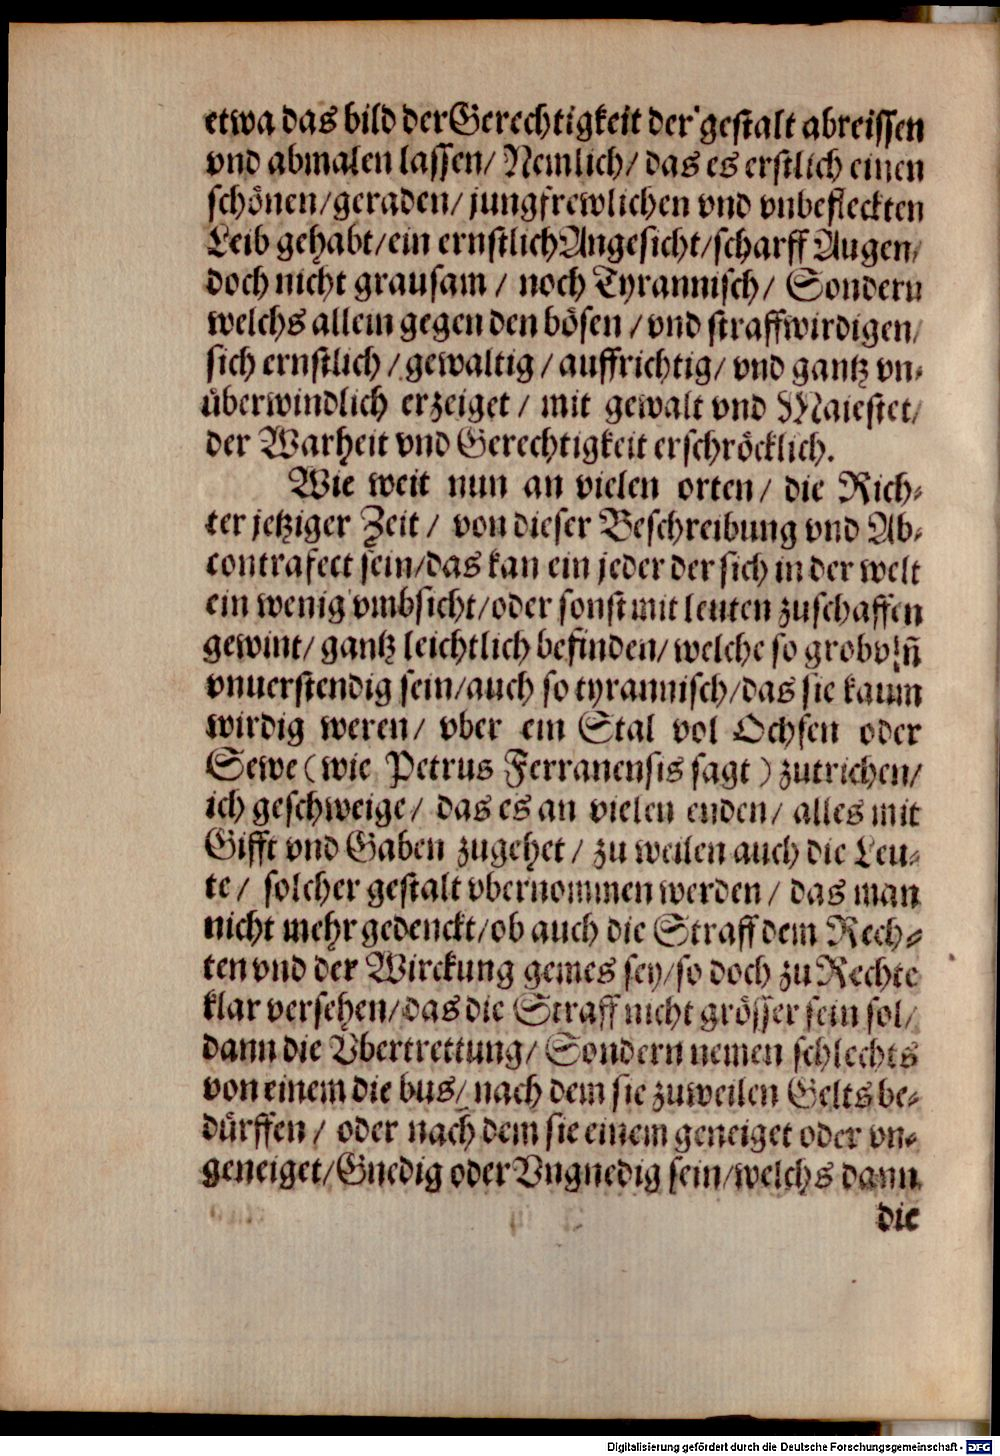 etwa das bild der Gerechtigkeit der gestalt abreissen
vnd abmalen lassen/ Nemlich/ das es erstlich einen
schönen/geraden/ jungfrewlichen vnd vnbefleckten
Leib gehabt/ein ernstlich Angesicht/scharff Augen/
doch nicht grausam / noch Tyrannisch/ Sondern
welchs allein gegen den bösen / vnd straffwirdigen/
sich ernstlich / gewaltig / auffrichtig/ vnd gantz vn-
überwindlich erzeiget / mit gewalt vnd Maiestet/
der Warheit vnd Gerechtigkeit erschröcklich.
Wie weit nun an vielen orten/ die Rich-
ter jetziger Zeit / von dieser Beschreibung vnd Ab-
contrafect sein/das kan ein jeder der sich in der welt
ein wenig vmbsicht/oder sonst mit leuten zuschaffen
gewint/ gantz leichtlich befinden/ welche so grob vn̄
vnuerstendig sein/auch so tyrannisch/das sie kaum
wirdig weren/ vber ein Stal vol Ochsen oder
Sewe (wie Petrus Ferranensis sagt) zutrichen/
ich geschweige/ das es an vielen enden/ alles mit
Gifft vnd Gaben zugehet / zu weilen auch die Leu-
te / solcher gestalt vbernommen werden / das man
nicht mehr gedenckt/ob auch die Straff dem Rech-
ten vnd der Wirckung gemes sey/so doch zu Rechte
klar versehen/das die Straff nicht grösser sein sol/
dann die Vbertrettung/ Sondern nemen schlechts
von einem die bus/ nach dem sie zuweilen Gelts be-
dürffen / oder nach dem sie einem geneiget oder vn-
geneiget/Gnedig oder Vngnedig sein/welchs dann
die
Digitalisierung gefördert durch die Deutsche Forschungsgemeinschaft - DFG